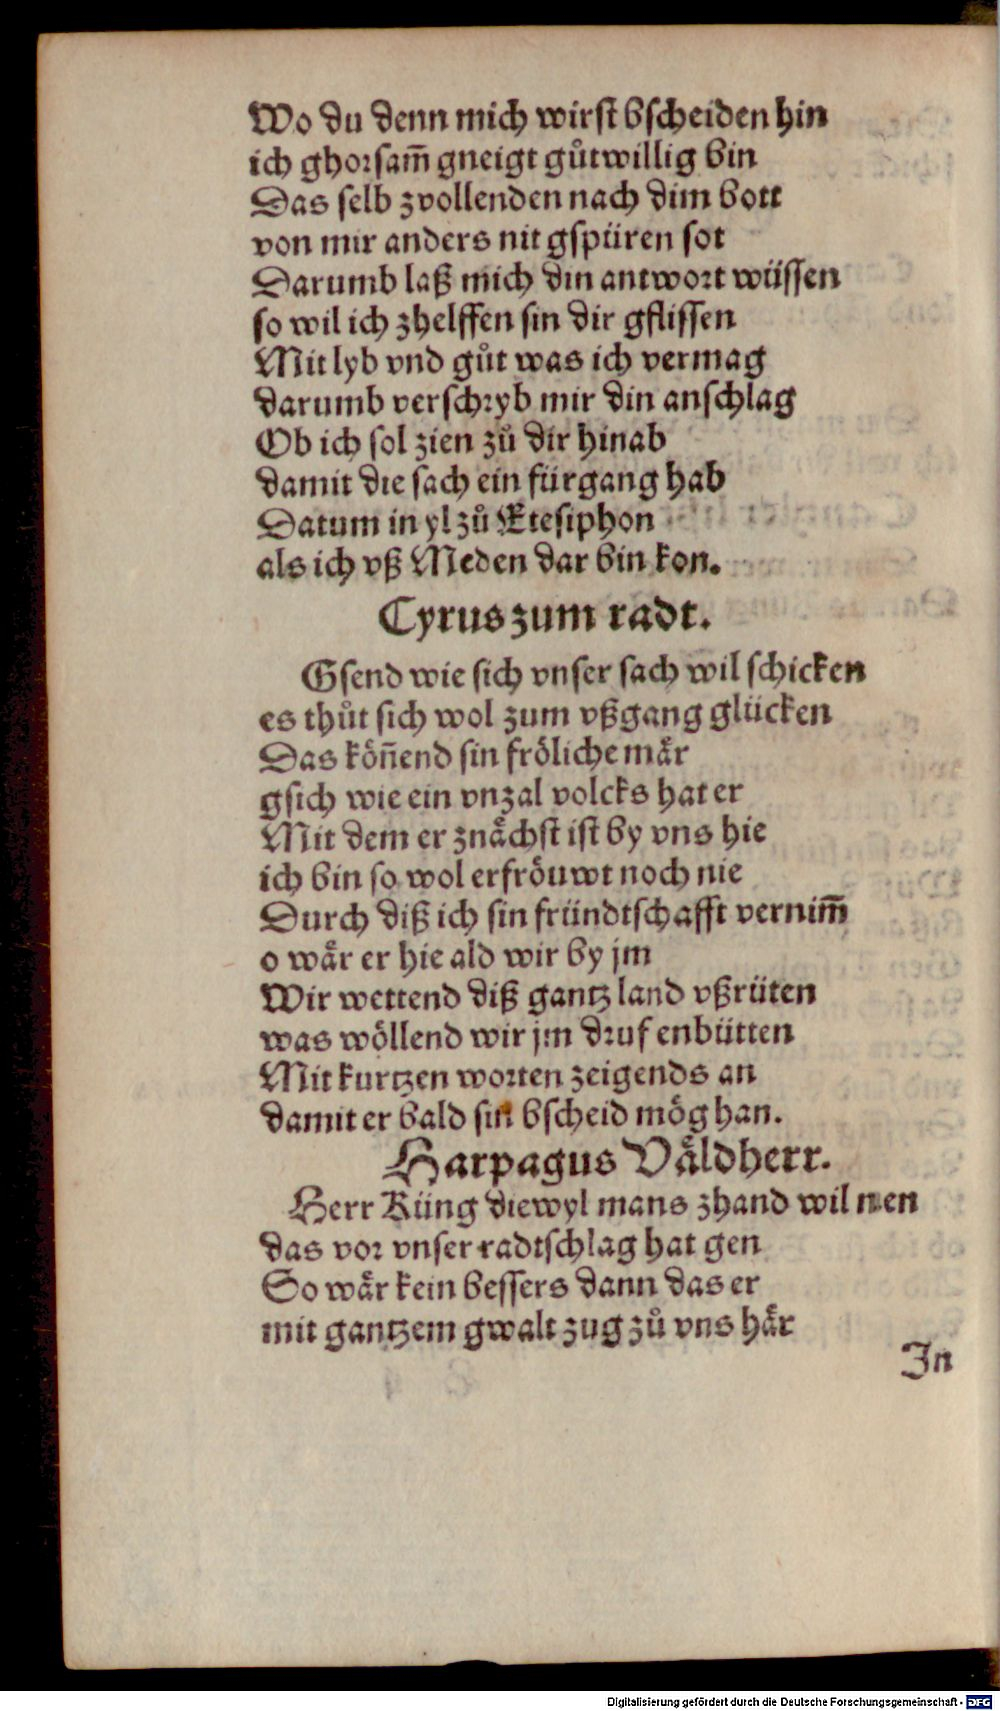 Wo du denn mich wirst bscheiden hin
ich ghorsam̄ gneigt gůtwillig bin
Das selb zvollenden nach dim bott
von mir anders nit gspüren sot
Darumb laß mich din antwort wüssen
so wil ich zhelffen sin dir gflissen
Mit lyb vnd gůt was ich vermag
darumb verschryb mir din anschlag
Ob ich sol zien zů dir hinab
damit die sach ein fürgang hab
Datum in yl zů Etesiphon
als ich vß Meden dar bin kon.
Cyrus zum radt.
Gsend wie sich vnser sach wil schicken
es thůt sich wol zum vßgang glücken
Das kön̄end sin fröliche mår
gsich wie ein vnzal volcks hat er
Mit dem er znåchst ist by vns hie
ich bin so wol erfröuwt noch nie
Durch diß ich sin fründtschafft vernim̄
o wår er hie ald wir by jm
Wir wettend diß gantz land vßrüten
was wöllend wir jm druf enbütten
Mit kurtzen worten zeigends an
damit er bald sin bscheid mög han.
Harpagus Våldherr.
Herr Küng diewyl mans zhand wil nen
das vor vnser radtschlag hat gen
So wår kein bessers dann das er
mit gantzem gwalt zug zů vns hår
In
Digitalisierung gefördert durch die Deutsche Forschungsgemeinschaft - DFG